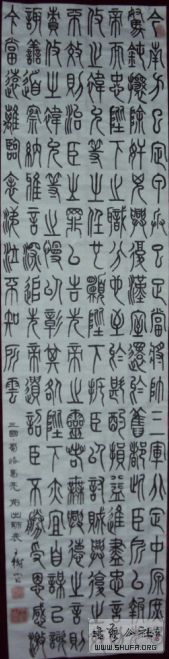 今南方已定甲兵已足當將帥三軍北定中原庶竭
駑鈍攘除奸凶興復漢室還於舊都此臣所以報先
帝而忠陛下之職分也至於斟酌損益進盡忠言則
攸之禕允等之任也願陛下托臣以討賊興復之效
不效則治臣之罪以告先帝之靈若無興德之言則
責攸之禕允等之慢以彰其咎陛下亦宜自謀以諮
諏善道察納雅言深追先帝遺詔臣不勝受恩感激
今當遠離臨表涕泣不知所雲
三國蜀諸葛亮前出師表
公社
WWW.SHUFA.ORG